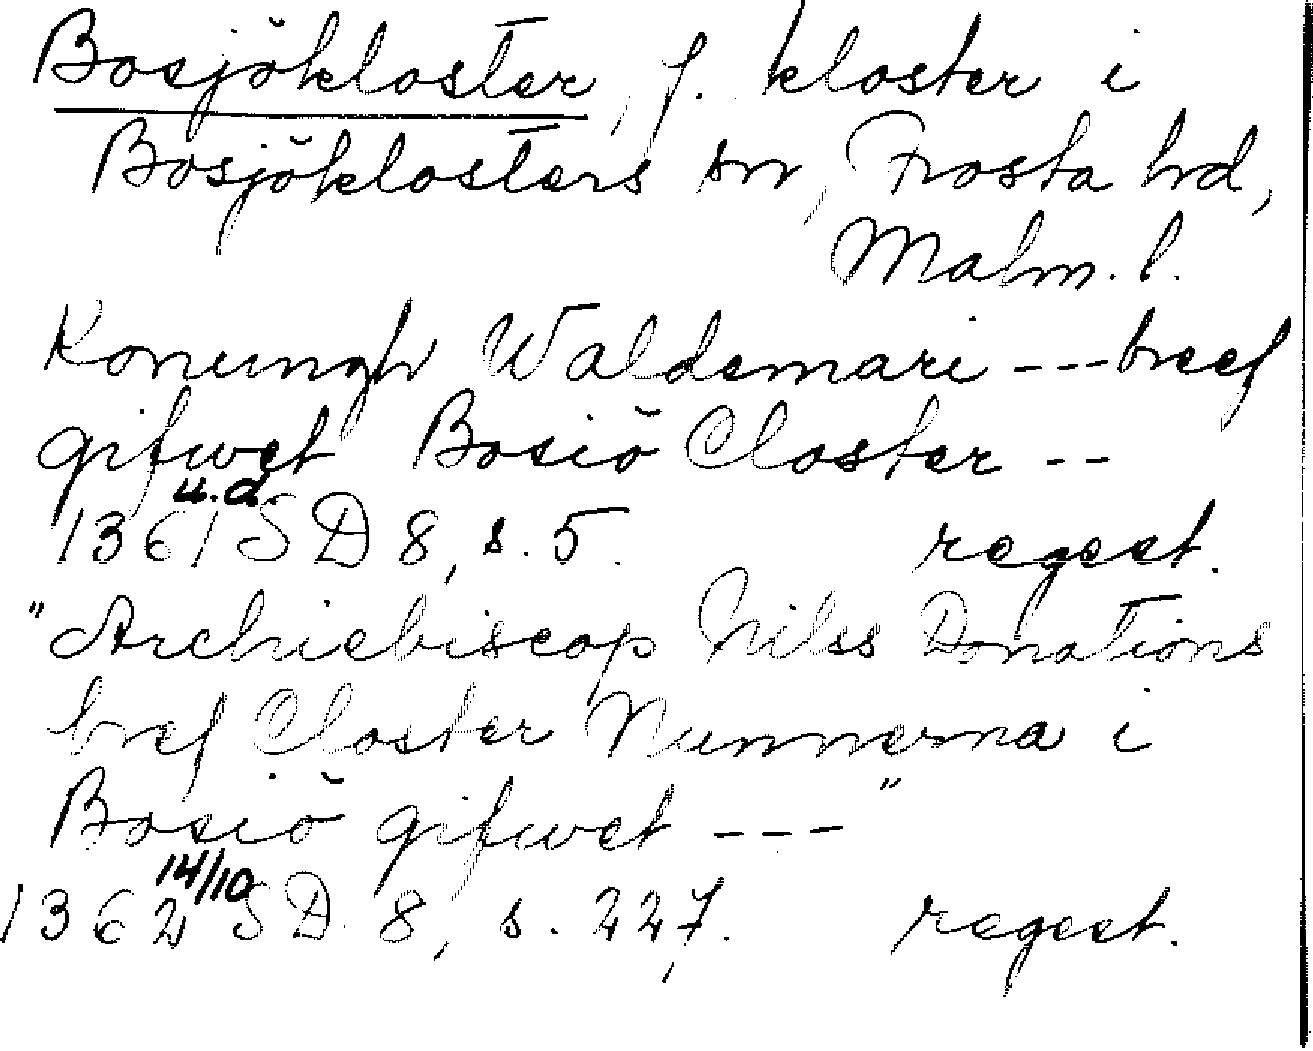 Bosjökloster, f. kloster i
Bosjöklosters sn, Frosta hd,
Malm. l.
Konungh Waldemari --- breef
gifwet Bosiö Closter --
1361 u.d. SD 8, s. 5. regest.
"Archiebiscop Nilss Donations
bref Closter Nunnerna i
Bosiö gifwet --- "
1362 14/10 SD 8, s. 227. regest.